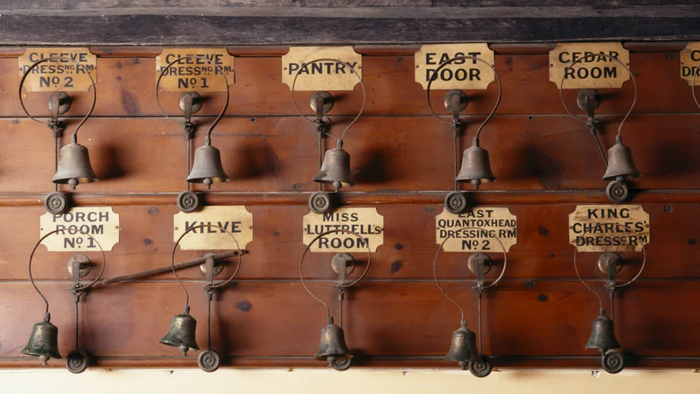 CLEEVE
DRESSNG RM
Nº2
CLEEVE
DRESSNG RM
Nº1
·PANTRY·
EAST
DOOR
CEDAR
ROOM
C
PORCH
ROOM
Nº1
KILVE
MISS
LUTTRELL'S
ROOM
EAST
QUANTOXHEAD
DRESSING RM
Nº2
KING
CHARLES'
DRESSG RM